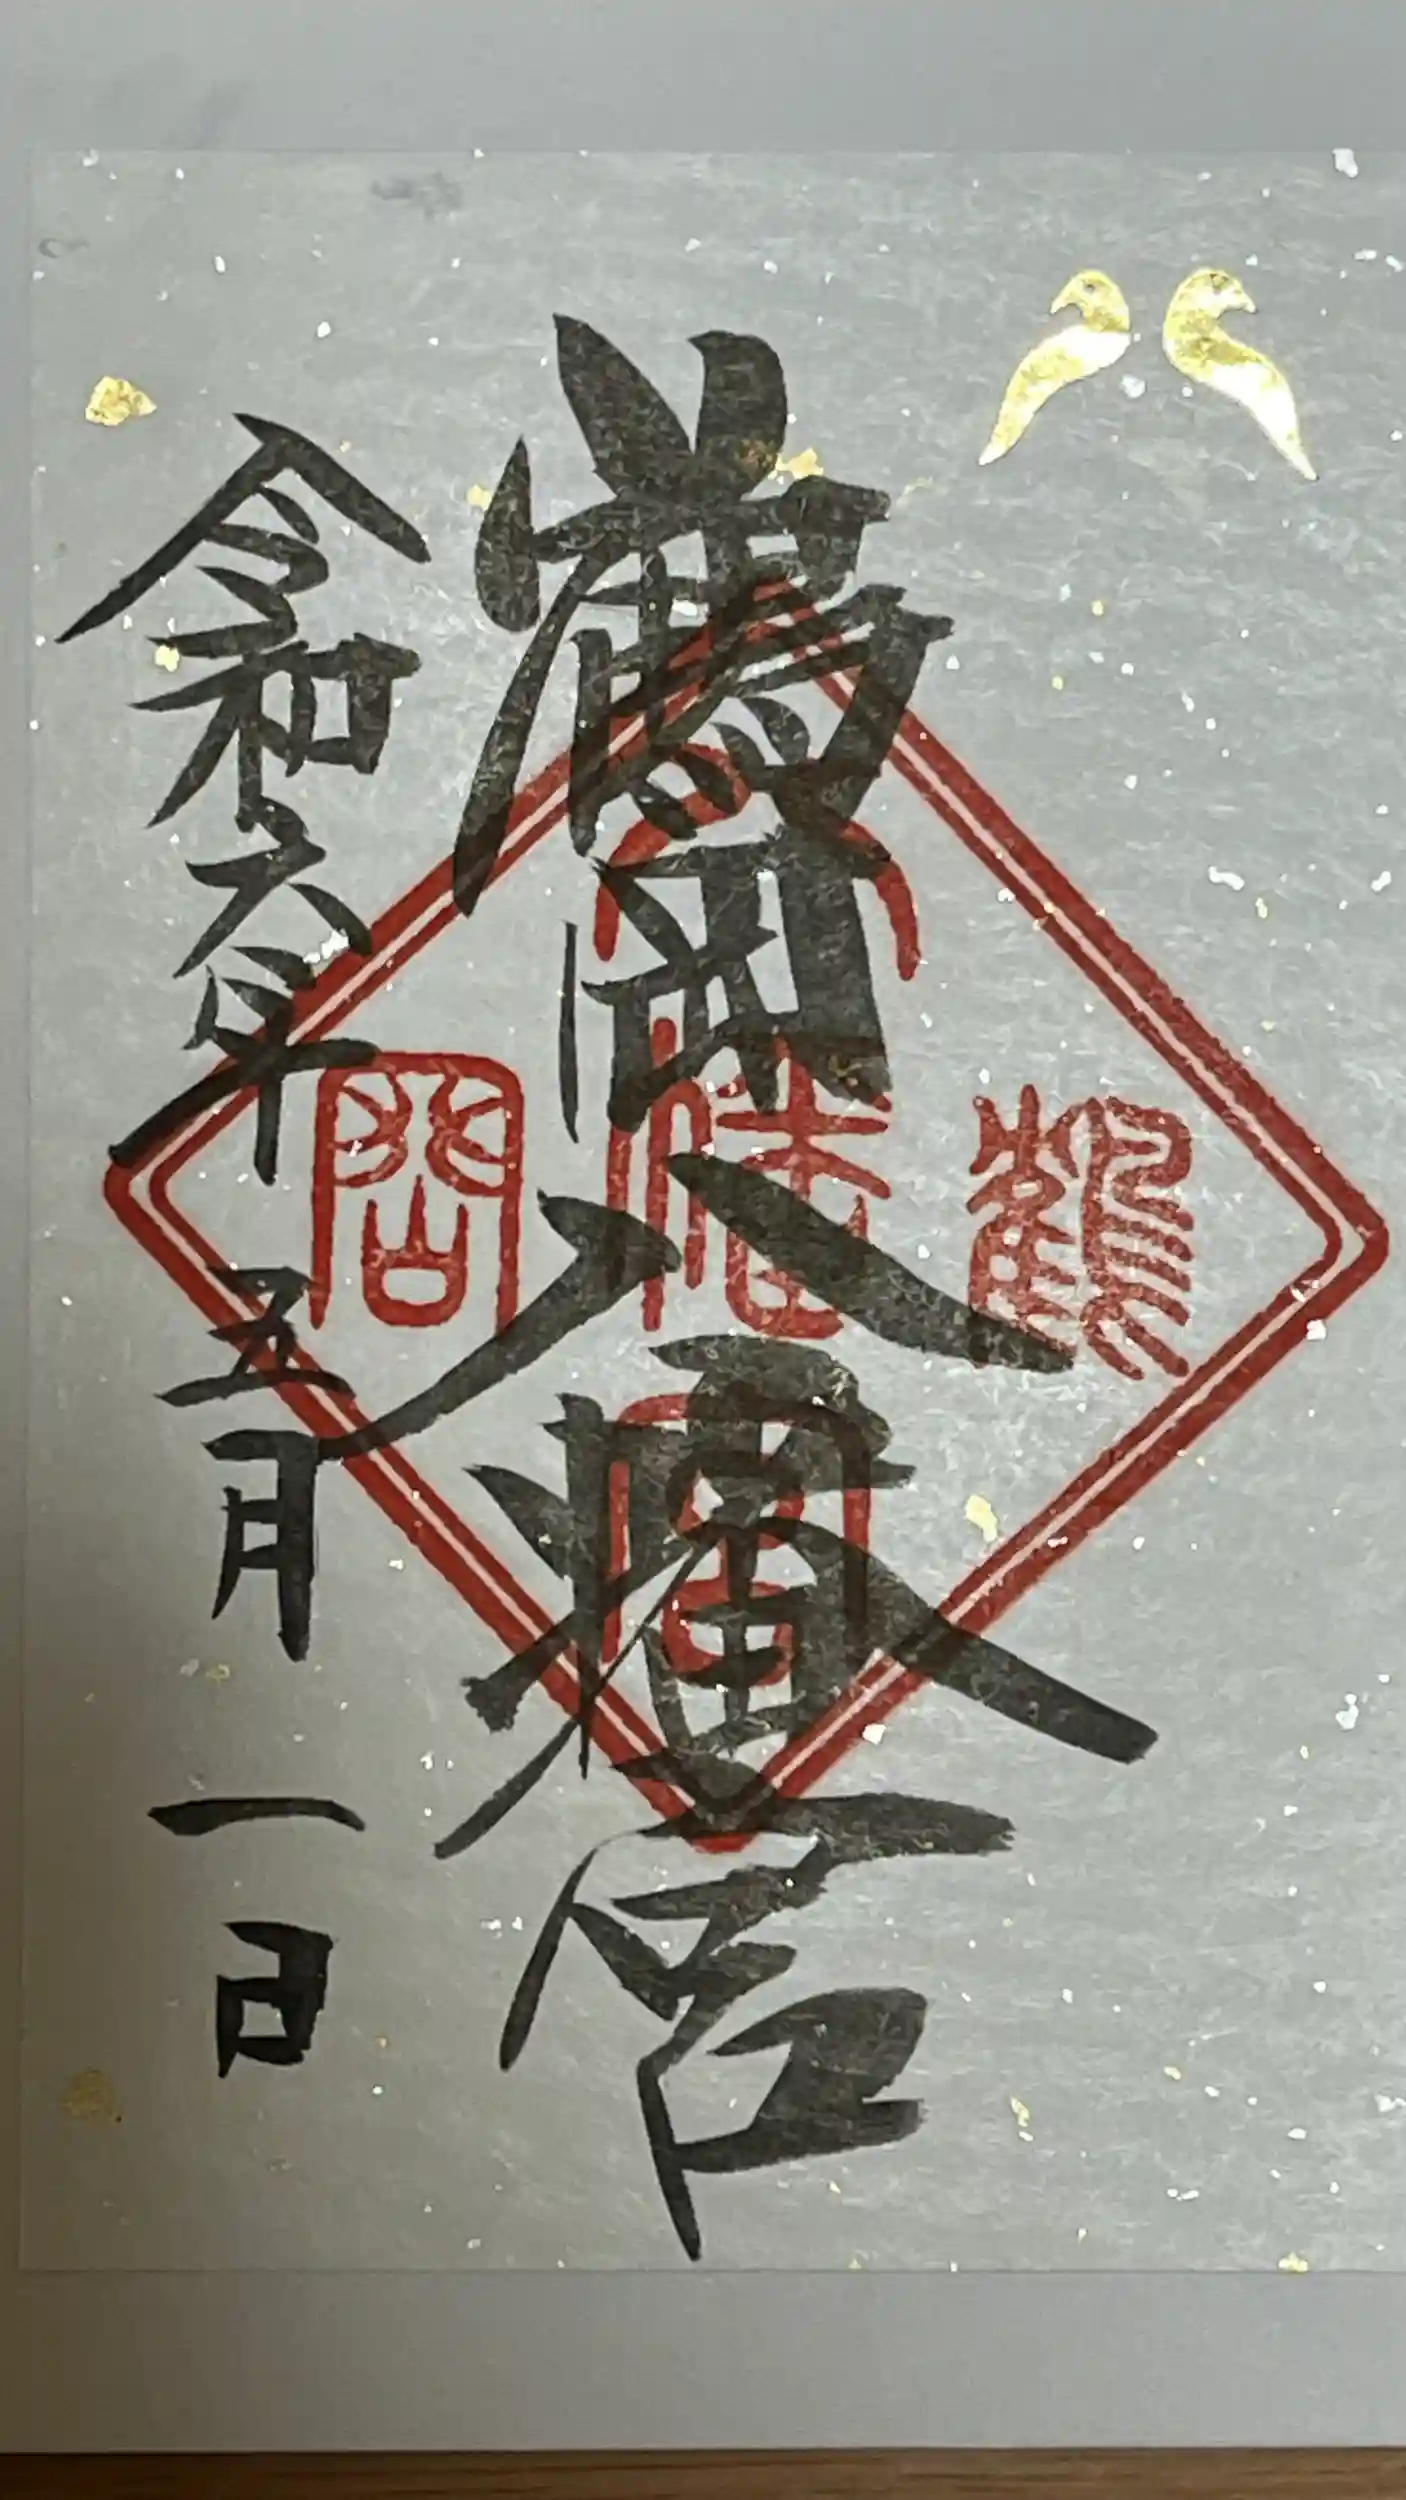 鶴岡八幡宮
令和六年五月一日
鶴岡八幡宮